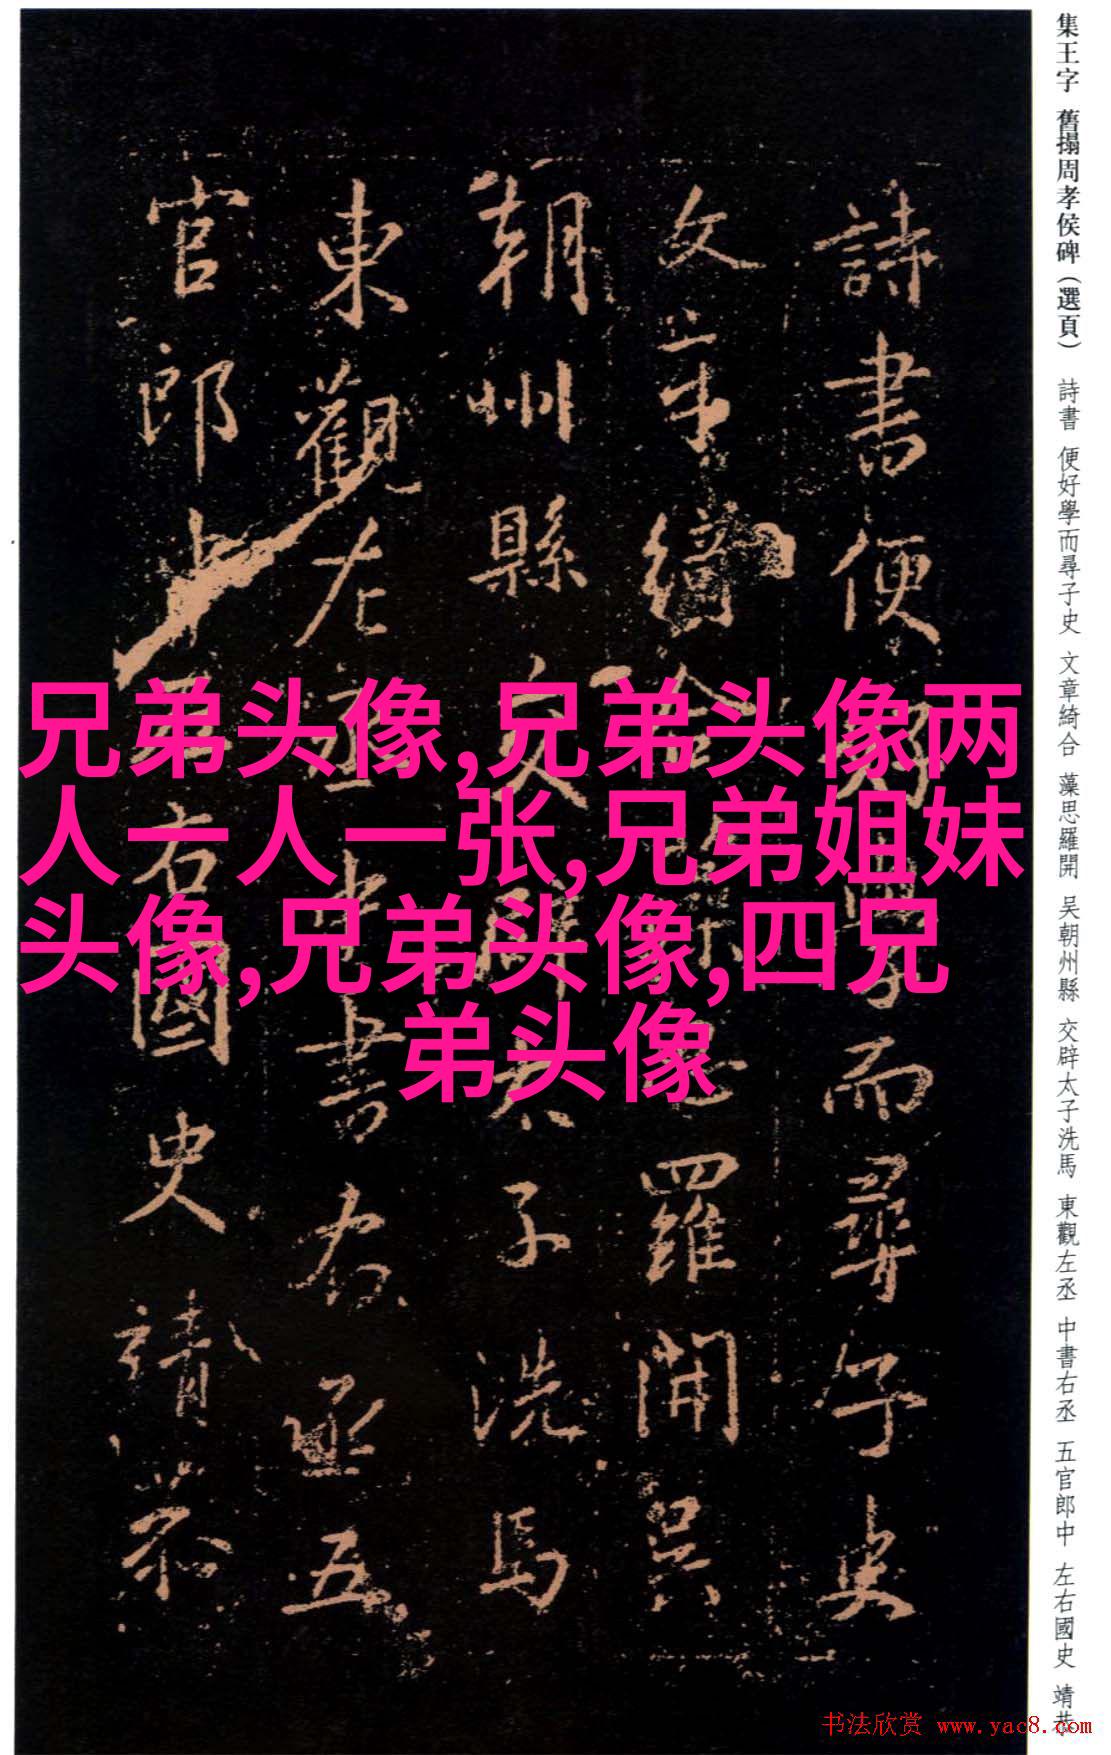 集王字 舊搨周孝侯碑(選頁) 詩書 便好學而尋子史 文章綺合 藻思羅開 吴朝州縣 交辟太子洗馬 東觀左丞 中書右丞 五官郎中 左右國史 靖恭
詩書便好學而尋子史
文章綺合藻思羅開吴
朝州縣交辟太子洗馬
東觀左丞中書右丞五
官郎中左右國史靖恭
兄弟头像,兄弟头像两
人一人一张,兄弟姐妹
头像,兄弟头像,四兄
弟头像
书法欣赏 www.yac8.com